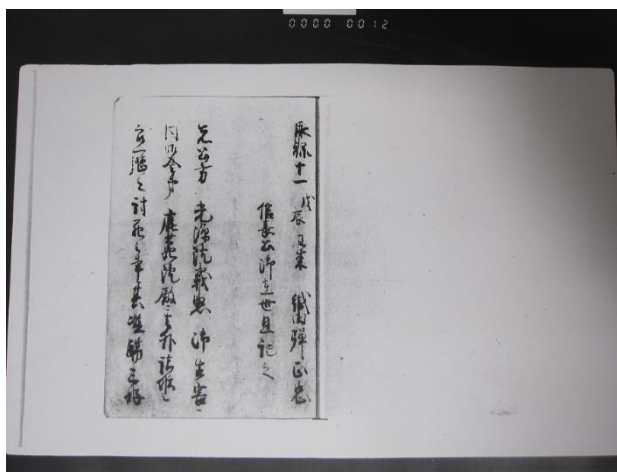 0000 0012
永禄十一 戊辰 以来 織田弾正忠
信長公御在世且記之
先公方 光源院義照 御生害
同御舎弟 鹿苑院殿 其外諸侯
衆歴々討死之事其濫觴三好